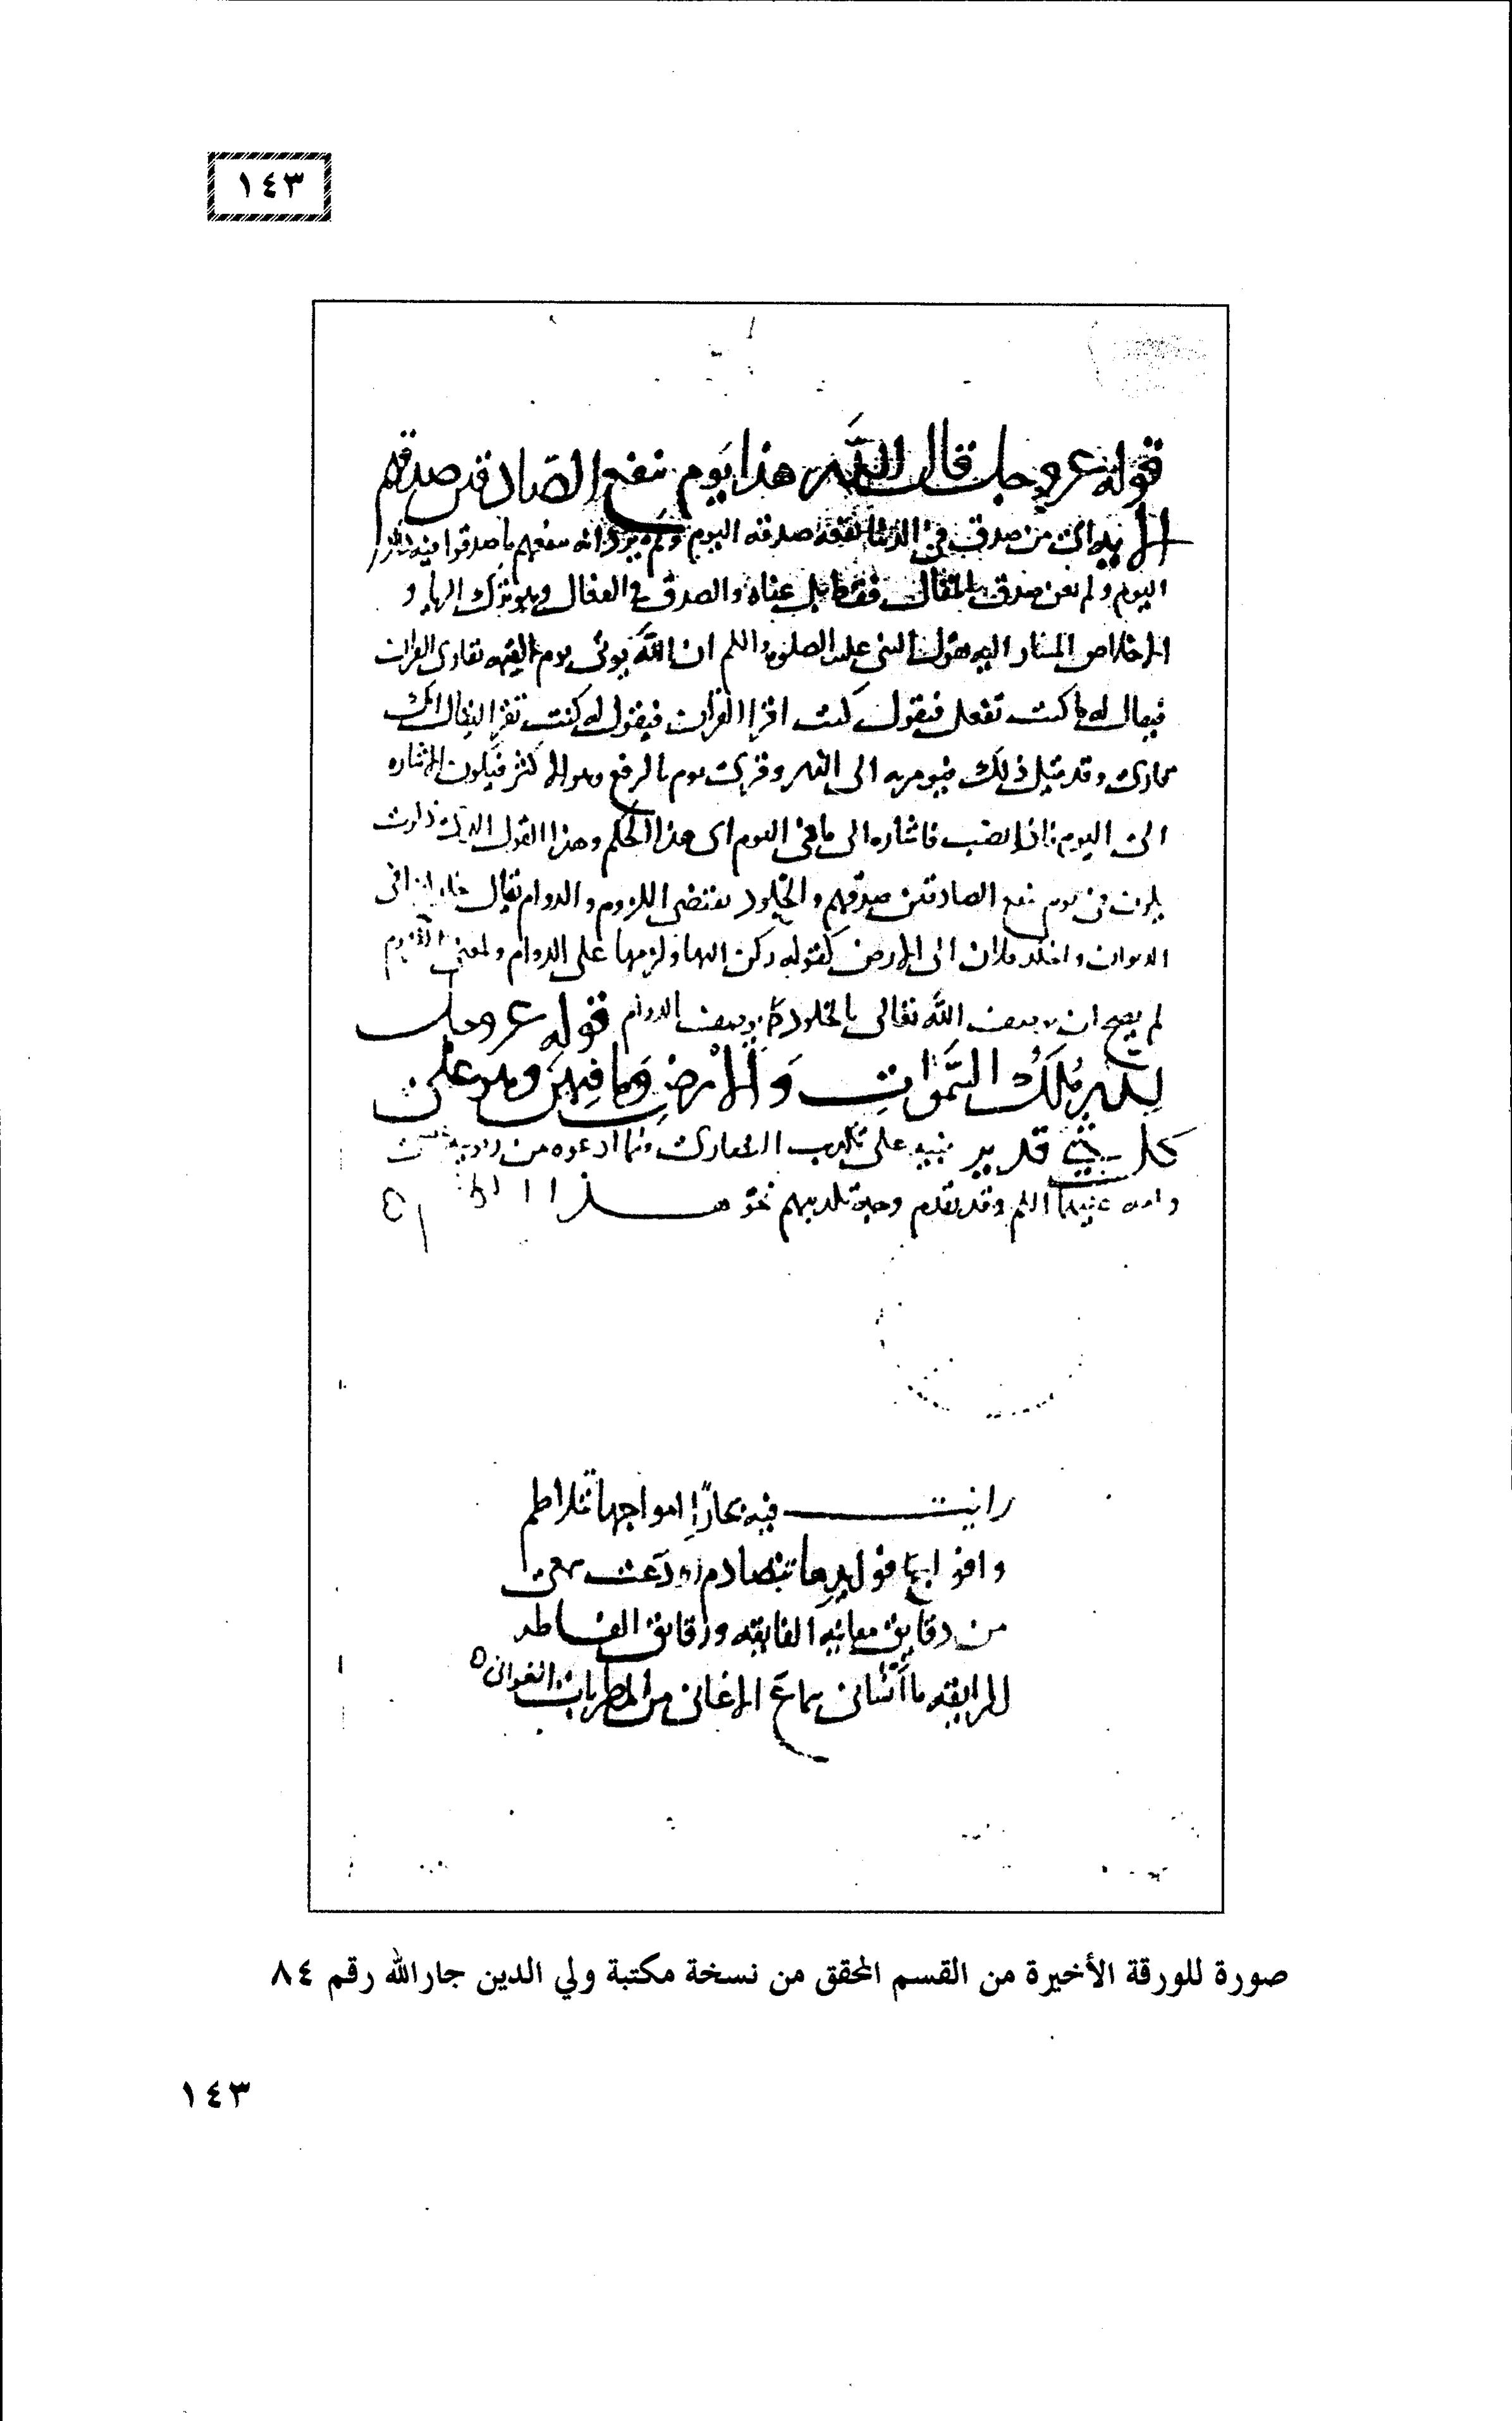 ١٤٣
قوله عز وجل قال الله هذا يوم ينفع الصادقين صدقهم
الآية اي من صدق في الدنيا نفعه صدقه اليوم ولم يرد انه ينفعهم ما صدقوا فيه
اليوم ولم يعن صدق المقال فقط بل عناه والصدق في الفعال وهو ترك الرياء و
الاخلاص المشار اليه بقول النبي عليه الصلوة والسلم ان الله يوتى يوم القيمة بقارى القران
فيقال له ما كنت تفعل فيقول كنت اقرا القران فيقول له كنت تقرا ليقال انك
قارى وقد قيل ذلك فيومر به الى النار وقرى يوم بالرفع وهو الاكثر فيكون الاشاره
الى اليوم فاذا نصب فاشاره الى ما في اليوم اى هذا الحكم وهذا القول الذي
يكون في يوم ينفع الصادقين صدقهم والخلود يقتضى اللزوم والدوام يقال خلد
الديوان واخلد فلان الى الارض كقوله ركن اليها ولزمها على الدوام ولمعنى اللزوم
لم يصح ان يوصف الله تعالى بالخلود كما يوصف بالدوام قوله عز وجل
لله ملك السموات والارض وما فيهن وهو على
كل شي قدير تنبيه على تكذيب النصارى وما ادعوه من
وامه عليهما السلم وقد تقدم وجه تكذيبهم نحو هذا
رايت فيه بحارًا امواجها تتلاطم
وافواجها تتصادم اودعت سمعى
من دقايق معانيه الفايقه ورقايق الفاظه
الرايقه ما انسانى سماع الاغانى من المطربات الغوانى
صورة للورقة الأخيرة من القسم المحقق من نسخة مكتبة ولي الدين جارالله رقم ٨٤
١٤٣